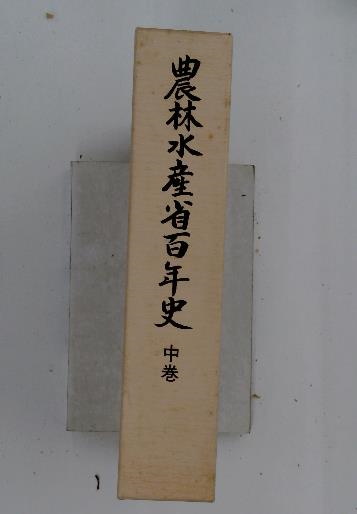 農林水産省百年史
中巻